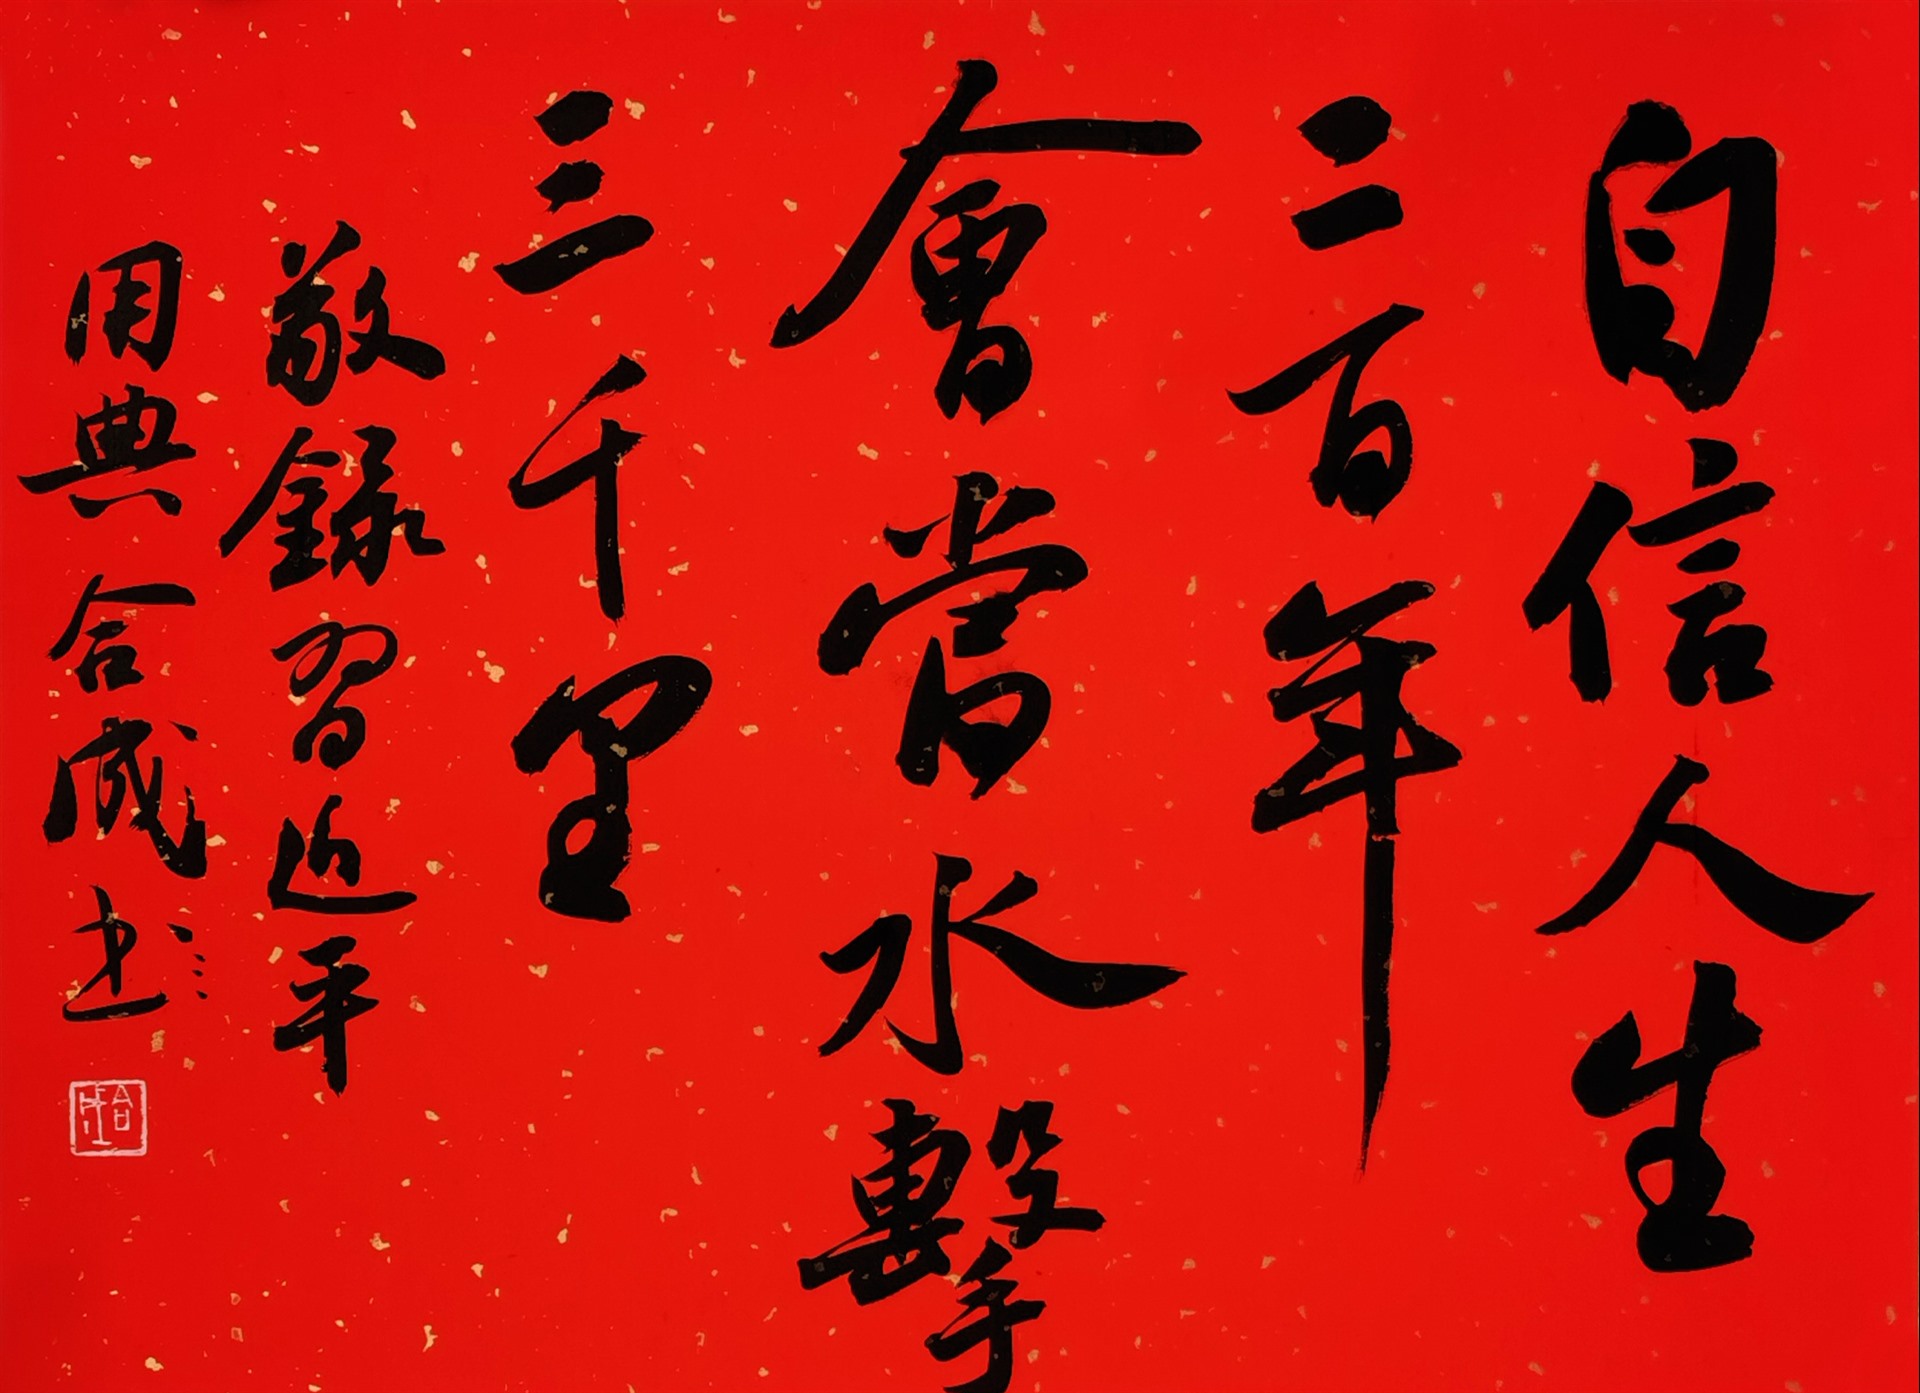 自信人生
二百年
會當水擊
三千里
敬錄習近平
用典 合成书